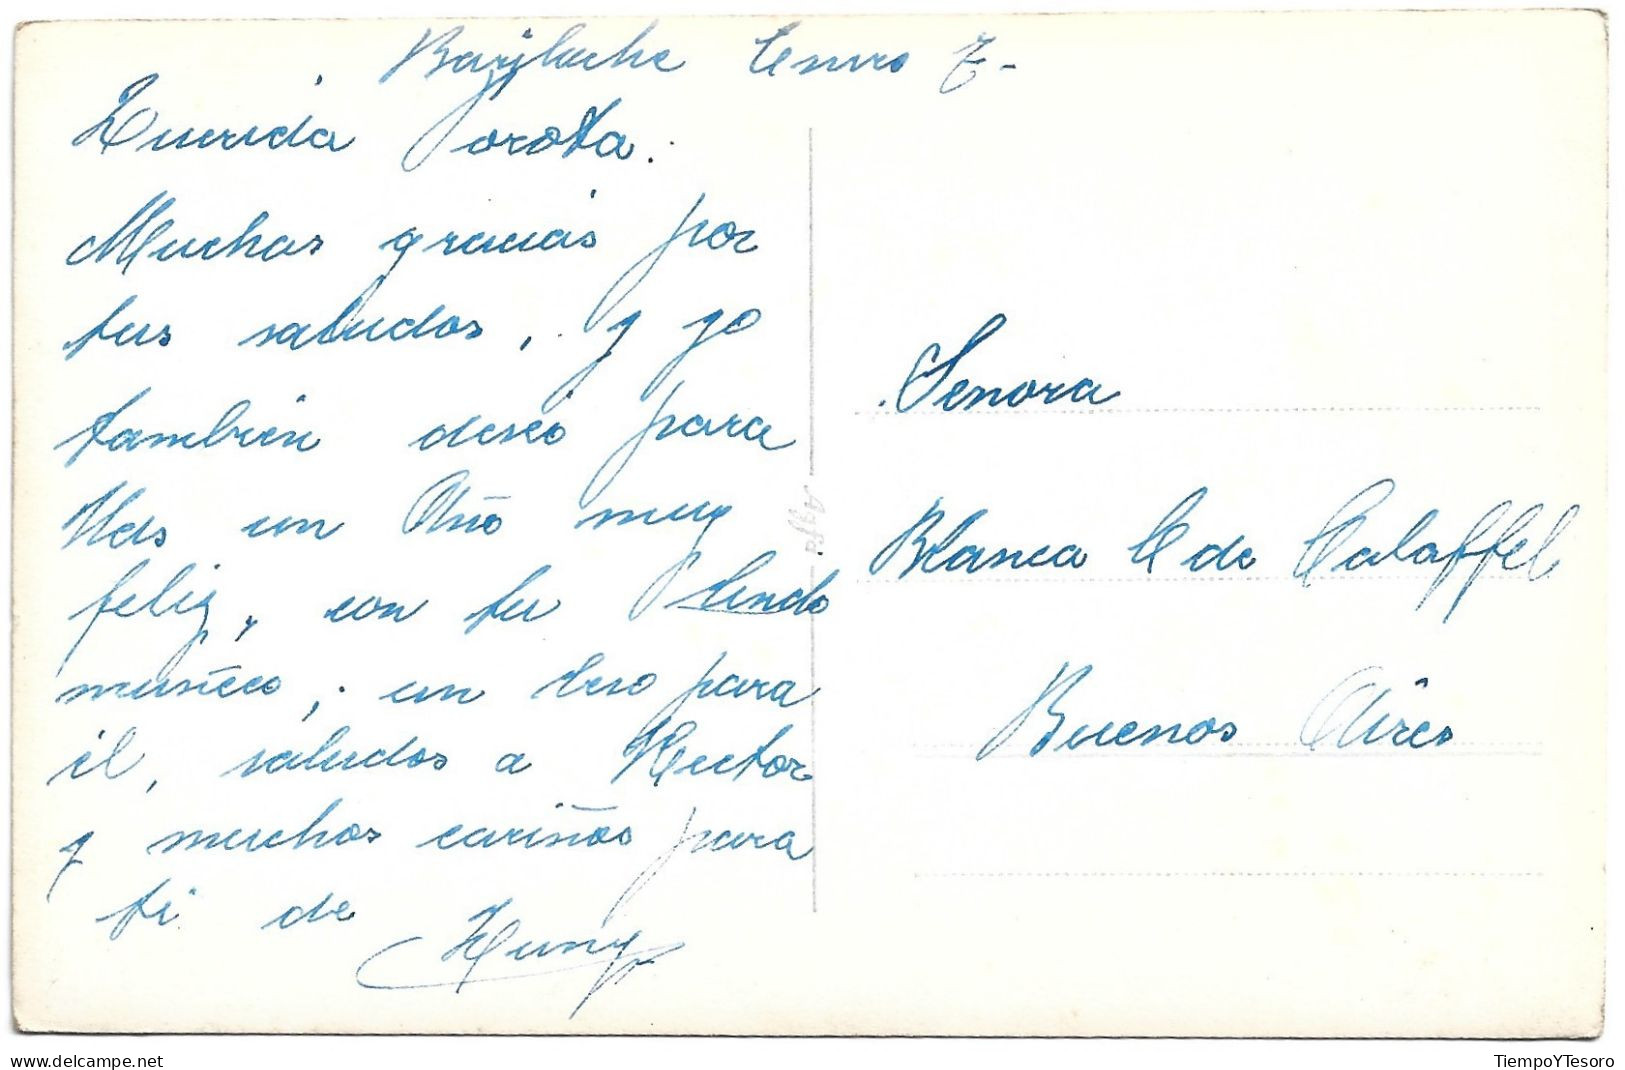 Bariloche Enero 7-
Querida Porota.
Muchas gracias por
tus saludos, y yo
también deseo para
Uds un Año muy
feliz, con tu lindo
muñeco, un beso para
él, saludos a Hector
y muchos cariños para
ti de
Señora
Blanca C de Calaffel
Buenos Aires
Agfa
TiempoYTesoro